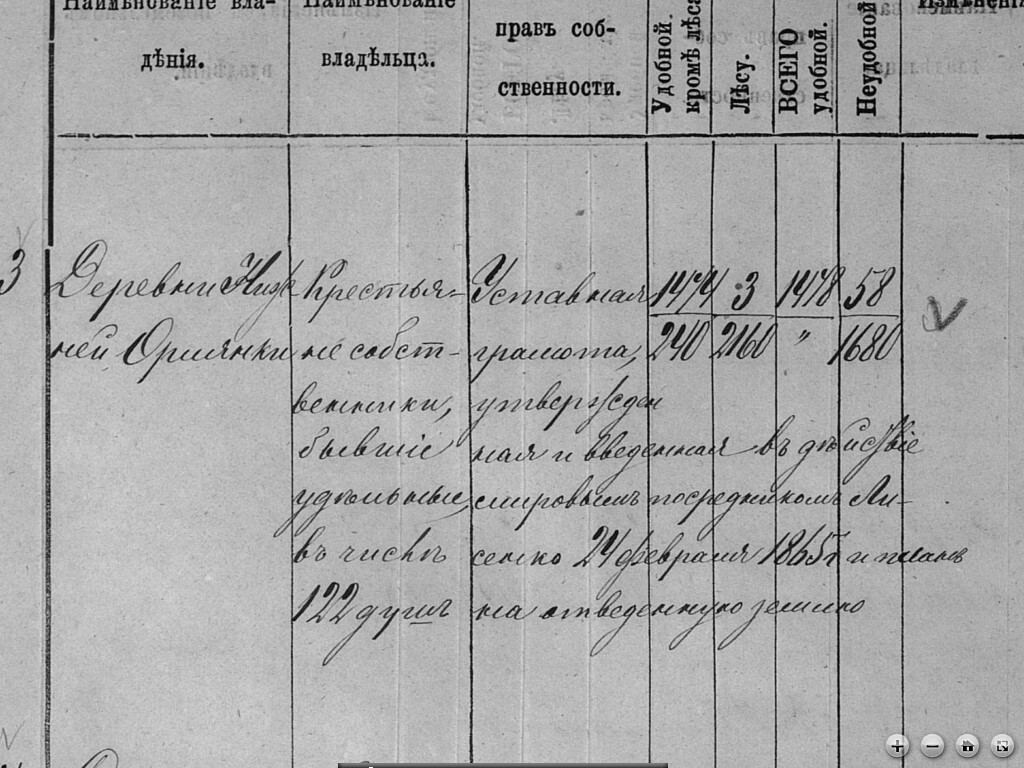 Наименованіе вла-
дѣнія.
Наименованіе
владѣльца.
правъ соб-
ственности.
Удобной.
кромѣ лѣса
Лѣсу.
ВСЕГО
удобной.
Неудобной
3
Деревни Ниж-
ней Орлянки
Крестья-
не собст-
венники,
бывшіе
удѣльные,
въ числѣ
122 душъ
Уставная
грамота,
утвержден
ная и введенная въ дѣйствіе
мировымъ посредникомъ Ли-
сенко 24 февраля 1865 г и планъ
на отведенную землю
1474
240
3
2160
1478
"
58
1680